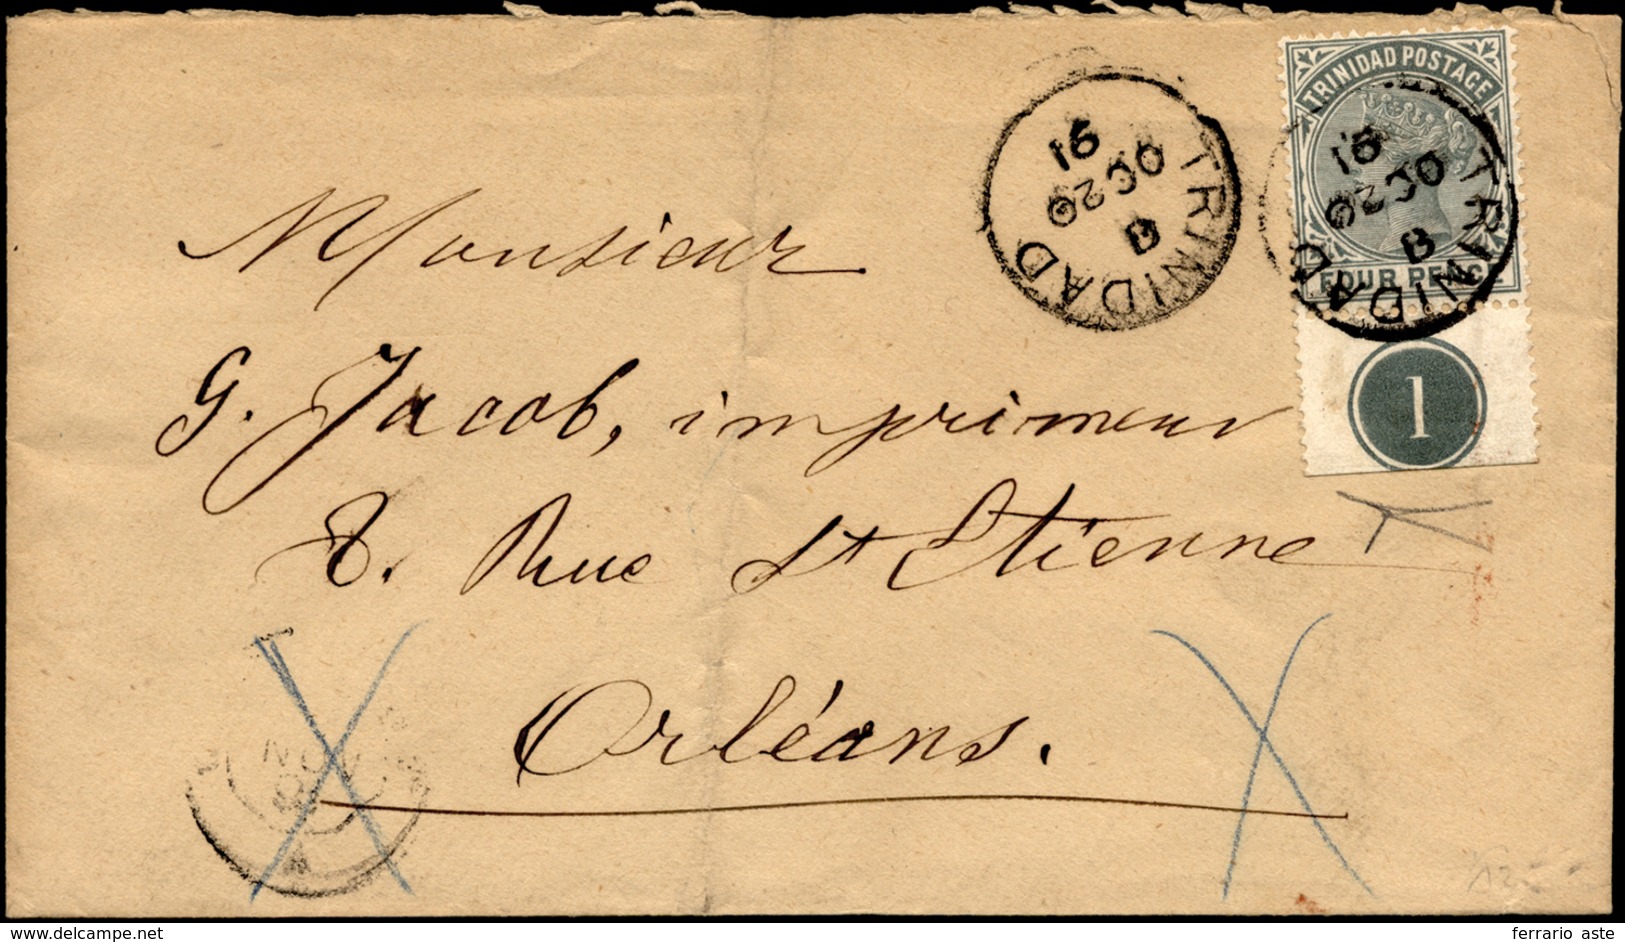 TRINIDAD POSTAGE
FOUR PENCE
TRINIDAD
B
OC 20
91
TRINIDAD
B
OC 20
91
1
Monsieur
G. Jacob, imprimeur
8. Rue St Etienne
Orléans.
NOV
www.delcampe.net
ferrario aste